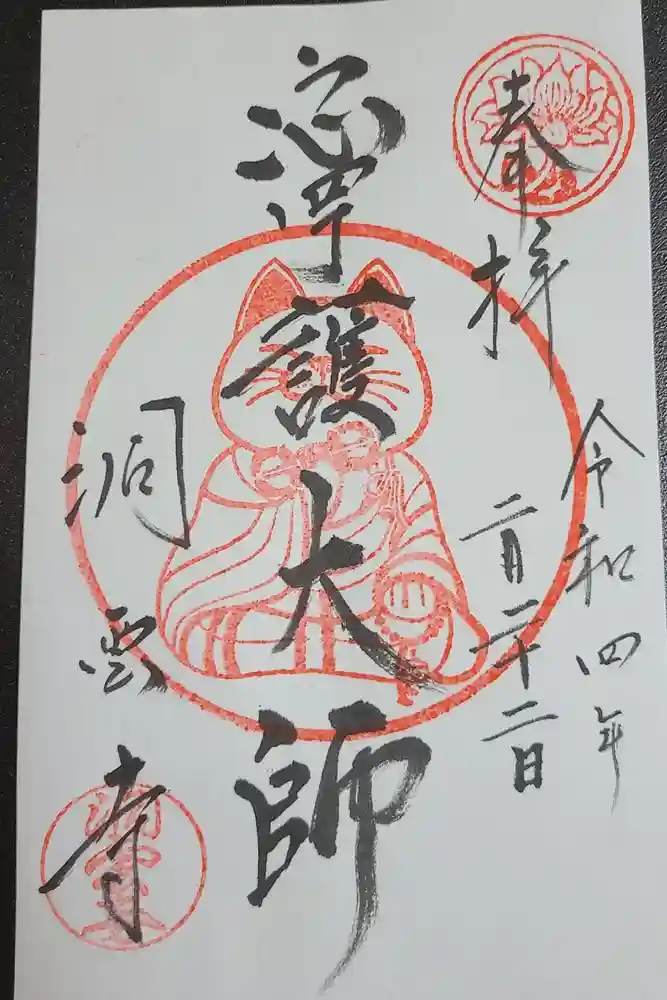 奉拝
令和四年
二月二十二日
護大師
洞雲寺